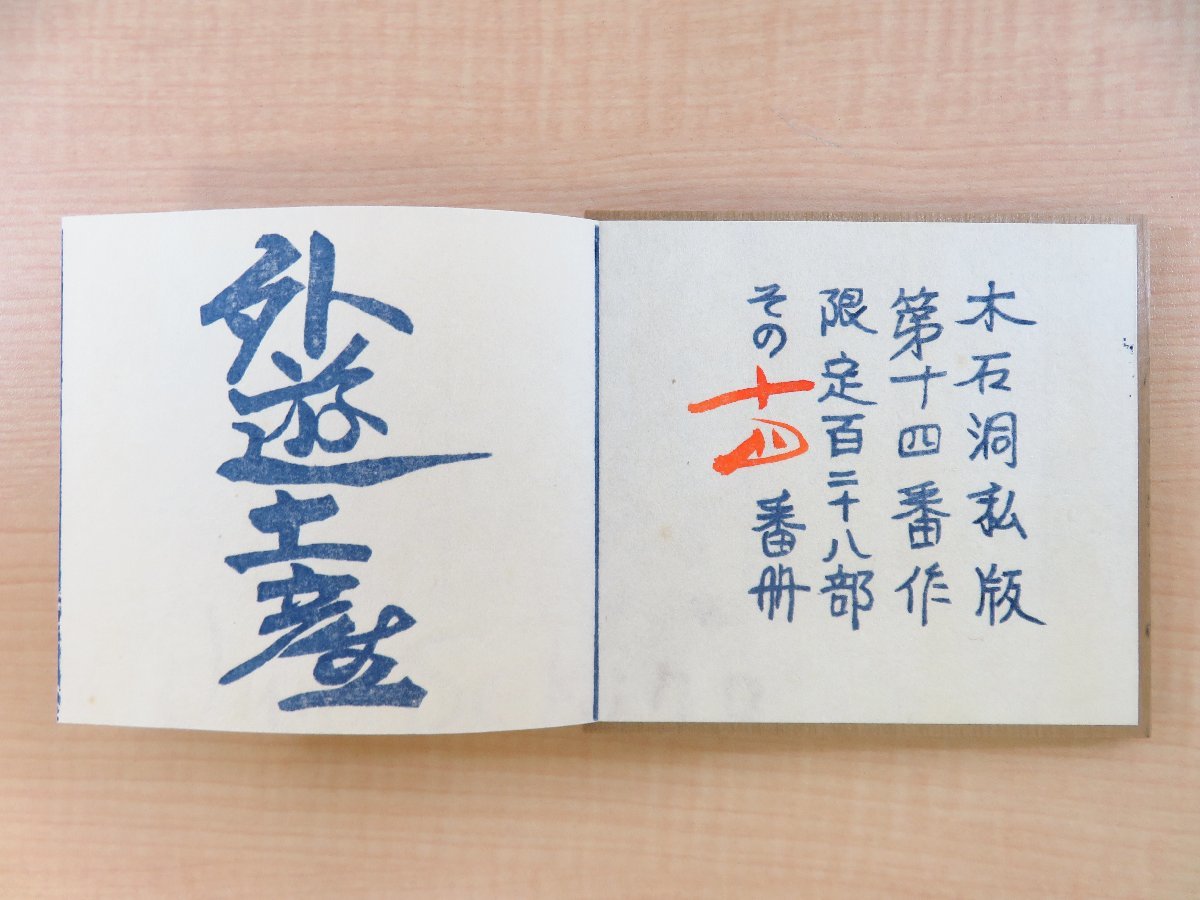 木石洞私版
第十四番作
限定百二十八部
その十四番册
外遊土産